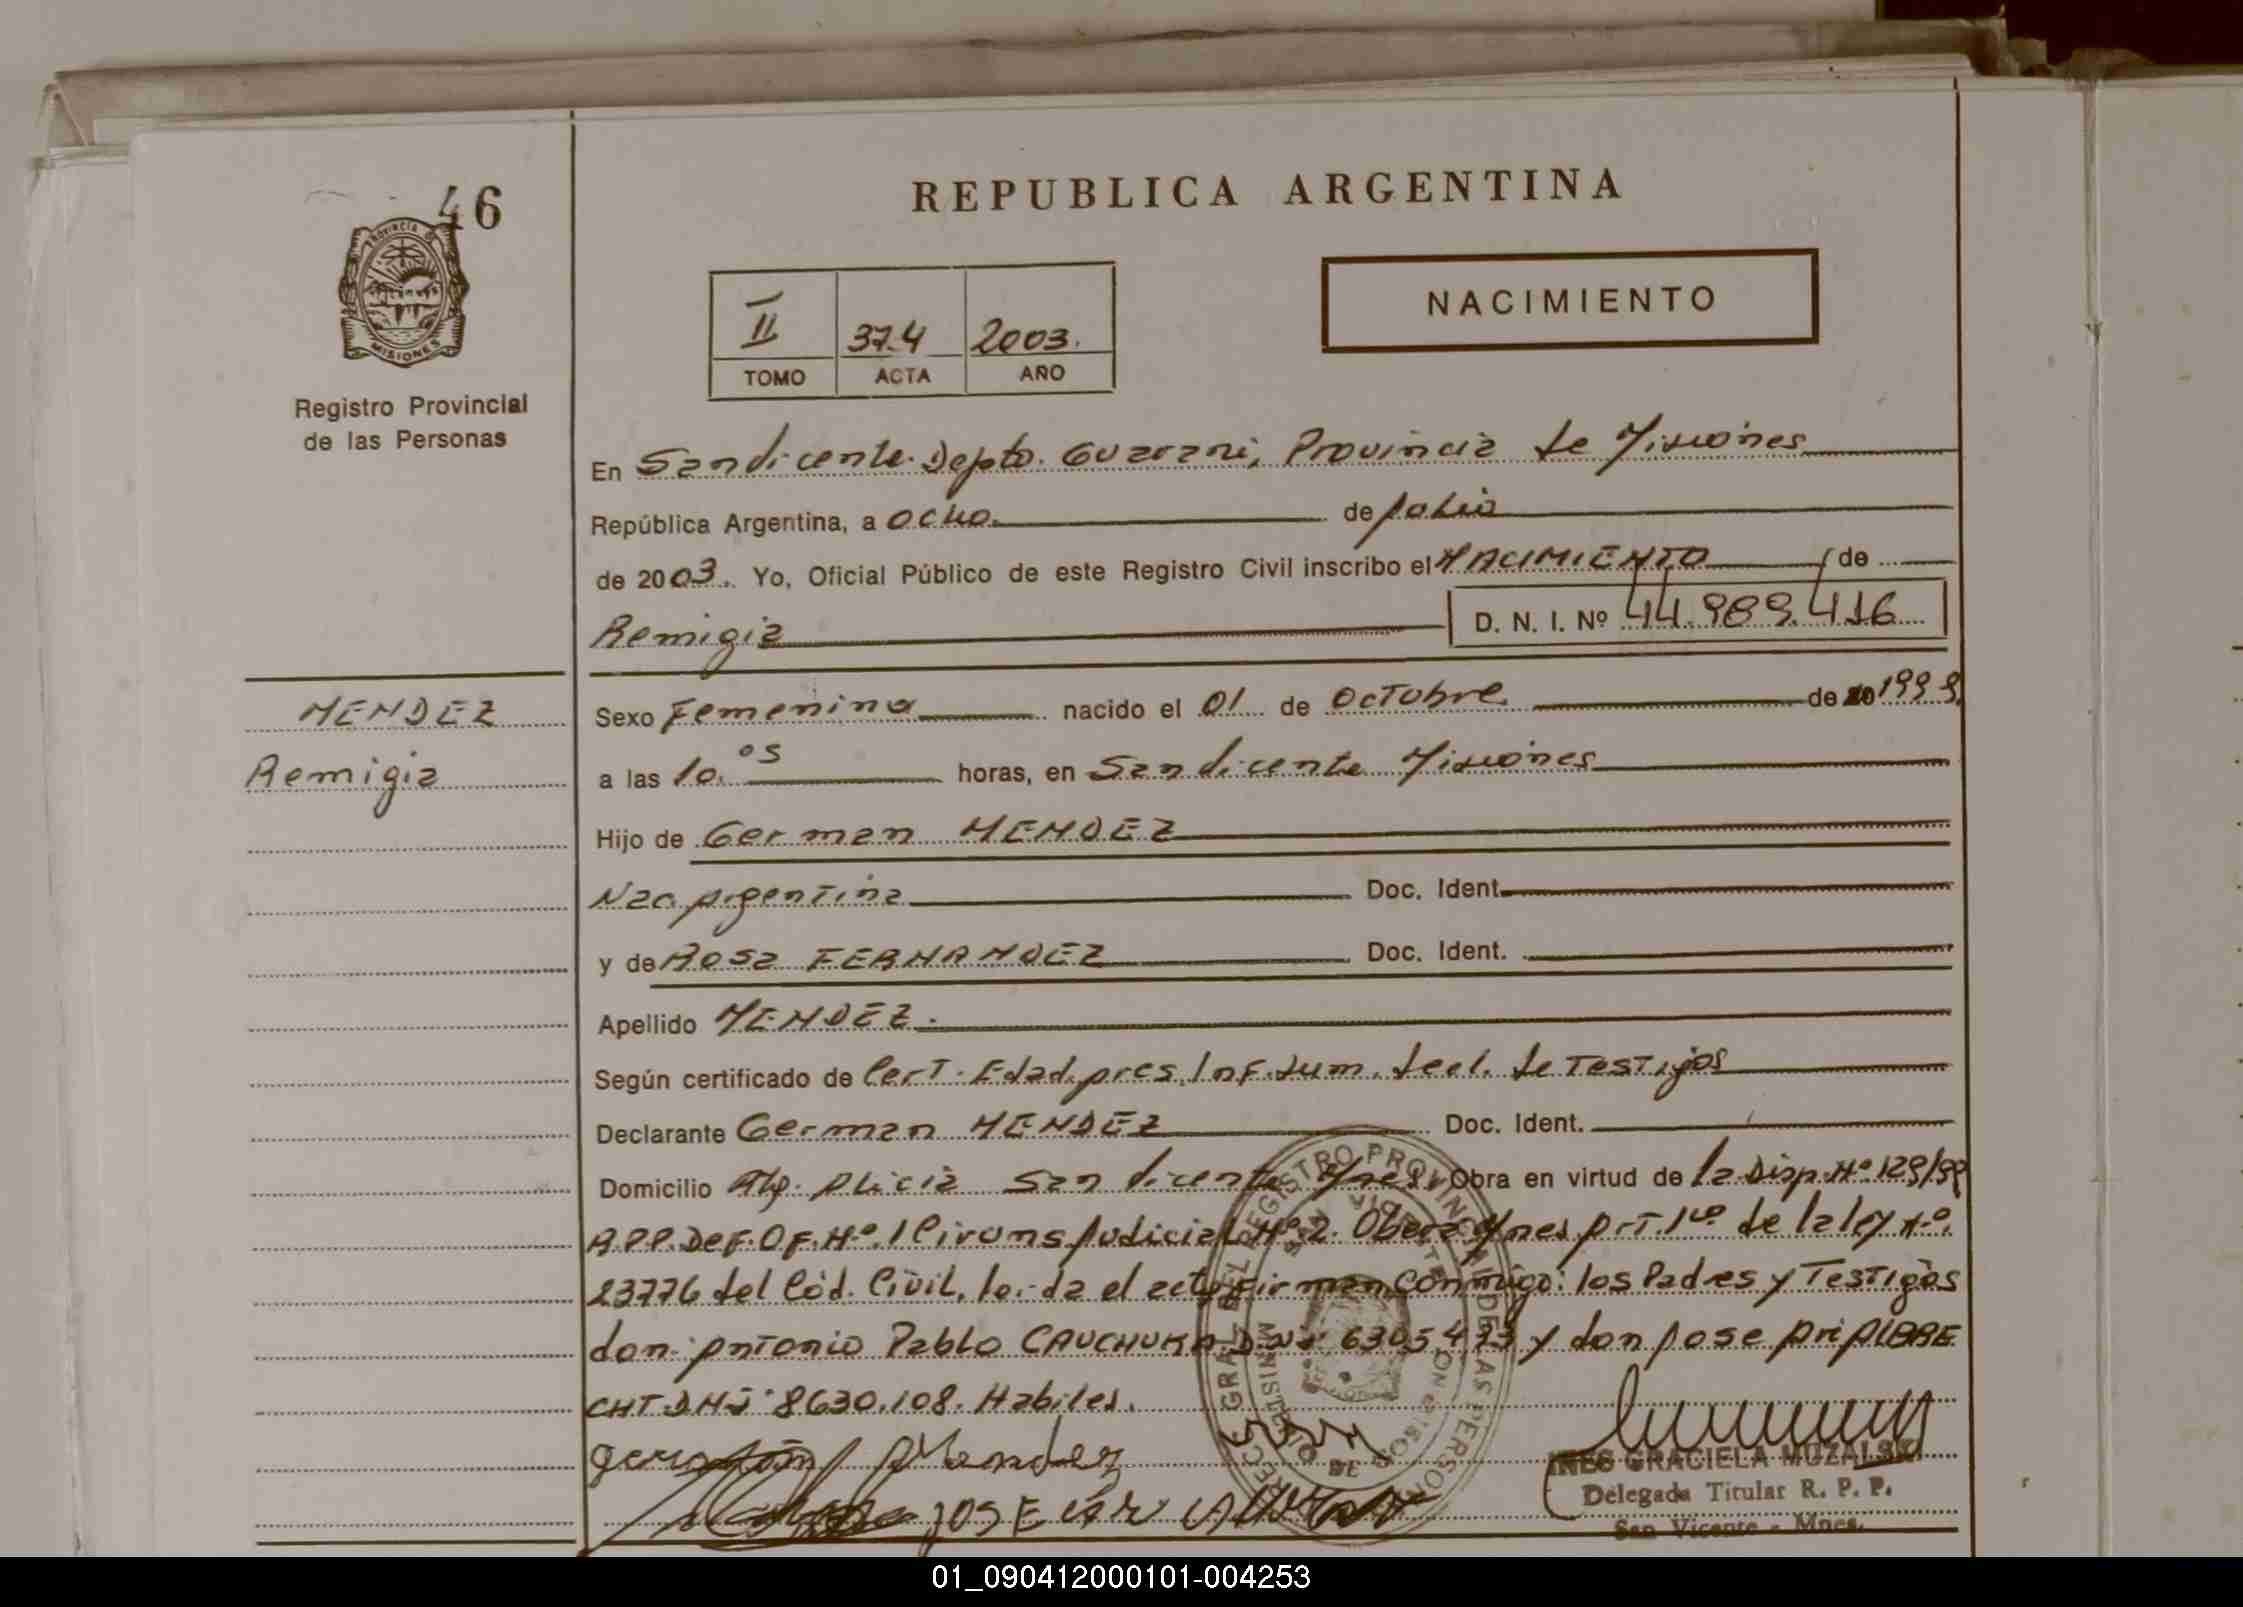 46
PROVINCIA DE
MISIONES
Registro Provincial
de las Personas
REPUBLICA ARGENTINA
NACIMIENTO
II 374 2003.
TOMO ACTA AÑO
En San Vicente. Depto. Guarani, Provincia de Misiones
República Argentina, a ocho. de Julio
de 2003. Yo, Oficial Público de este Registro Civil inscribo el NACIMIENTO de
Remigia D. N. I. Nº 44.989.416
MENDEZ
Remigia
Sexo Femenina nacido el 01 de Octubre de 20 1999.
a las 10.os horas, en San Vicente Misiones
Hijo de German MENDEZ
Nac. Argentina Doc. Ident.
y de Rosa FERNANDEZ Doc. Ident.
Apellido MENDEZ.
Según certificado de Cert. Edad. pres. Inf. Sum. de Testigos
Declarante German MENDEZ Doc. Ident.
Domicilio Alicia San Vicente Mnes. Obra en virtud de la Disp. Nº 129/99
R.P.P. Def. Of. Nº 1 Circuns Judicial Nº 2. Obera Mnes de la ley Nº.
23776 del Cód. Civil. leida el acta firman conmigo: los Padres y Testigos
don: Antonio Pablo CAUCHUKA 6305.473 y don Jose Ari ALBRE
CHT DNI 8630.108. Habiles.
Mendez
JOSE
INES GRACIELA MUZALSKI
Delegada Titular R. P. P.
San Vicente - Mnes.
01_090412000101-004253